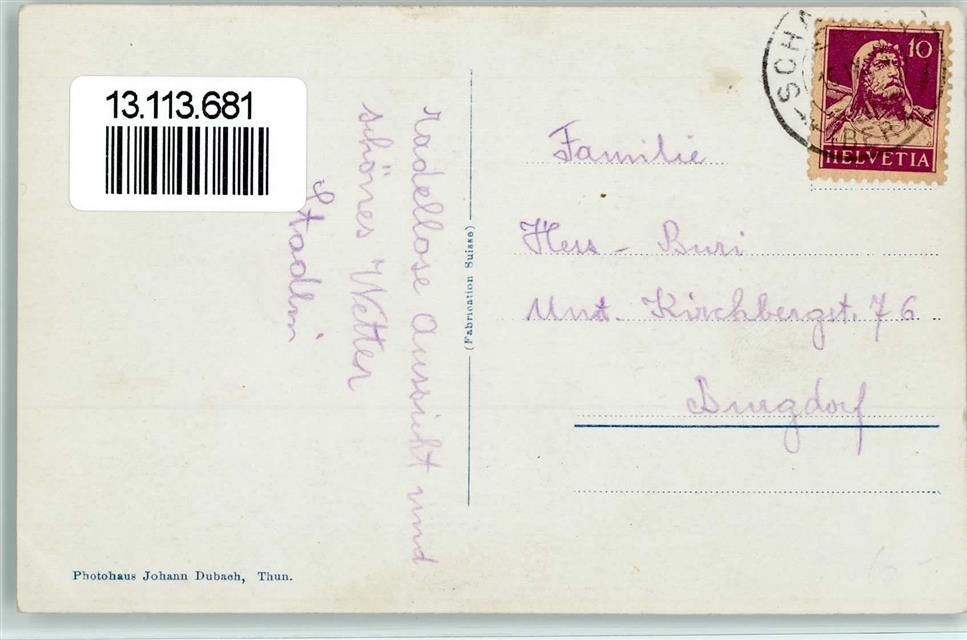 13.113.681
radellose Aussicht und
schönes Wetter
Stadlin
(Fabrication Suisse)
Photohaus Johann Dubach, Thun.
10
HELVETIA
Familie
Hess - Buri
Unt. Kirchbergst. 76
Burgdorf